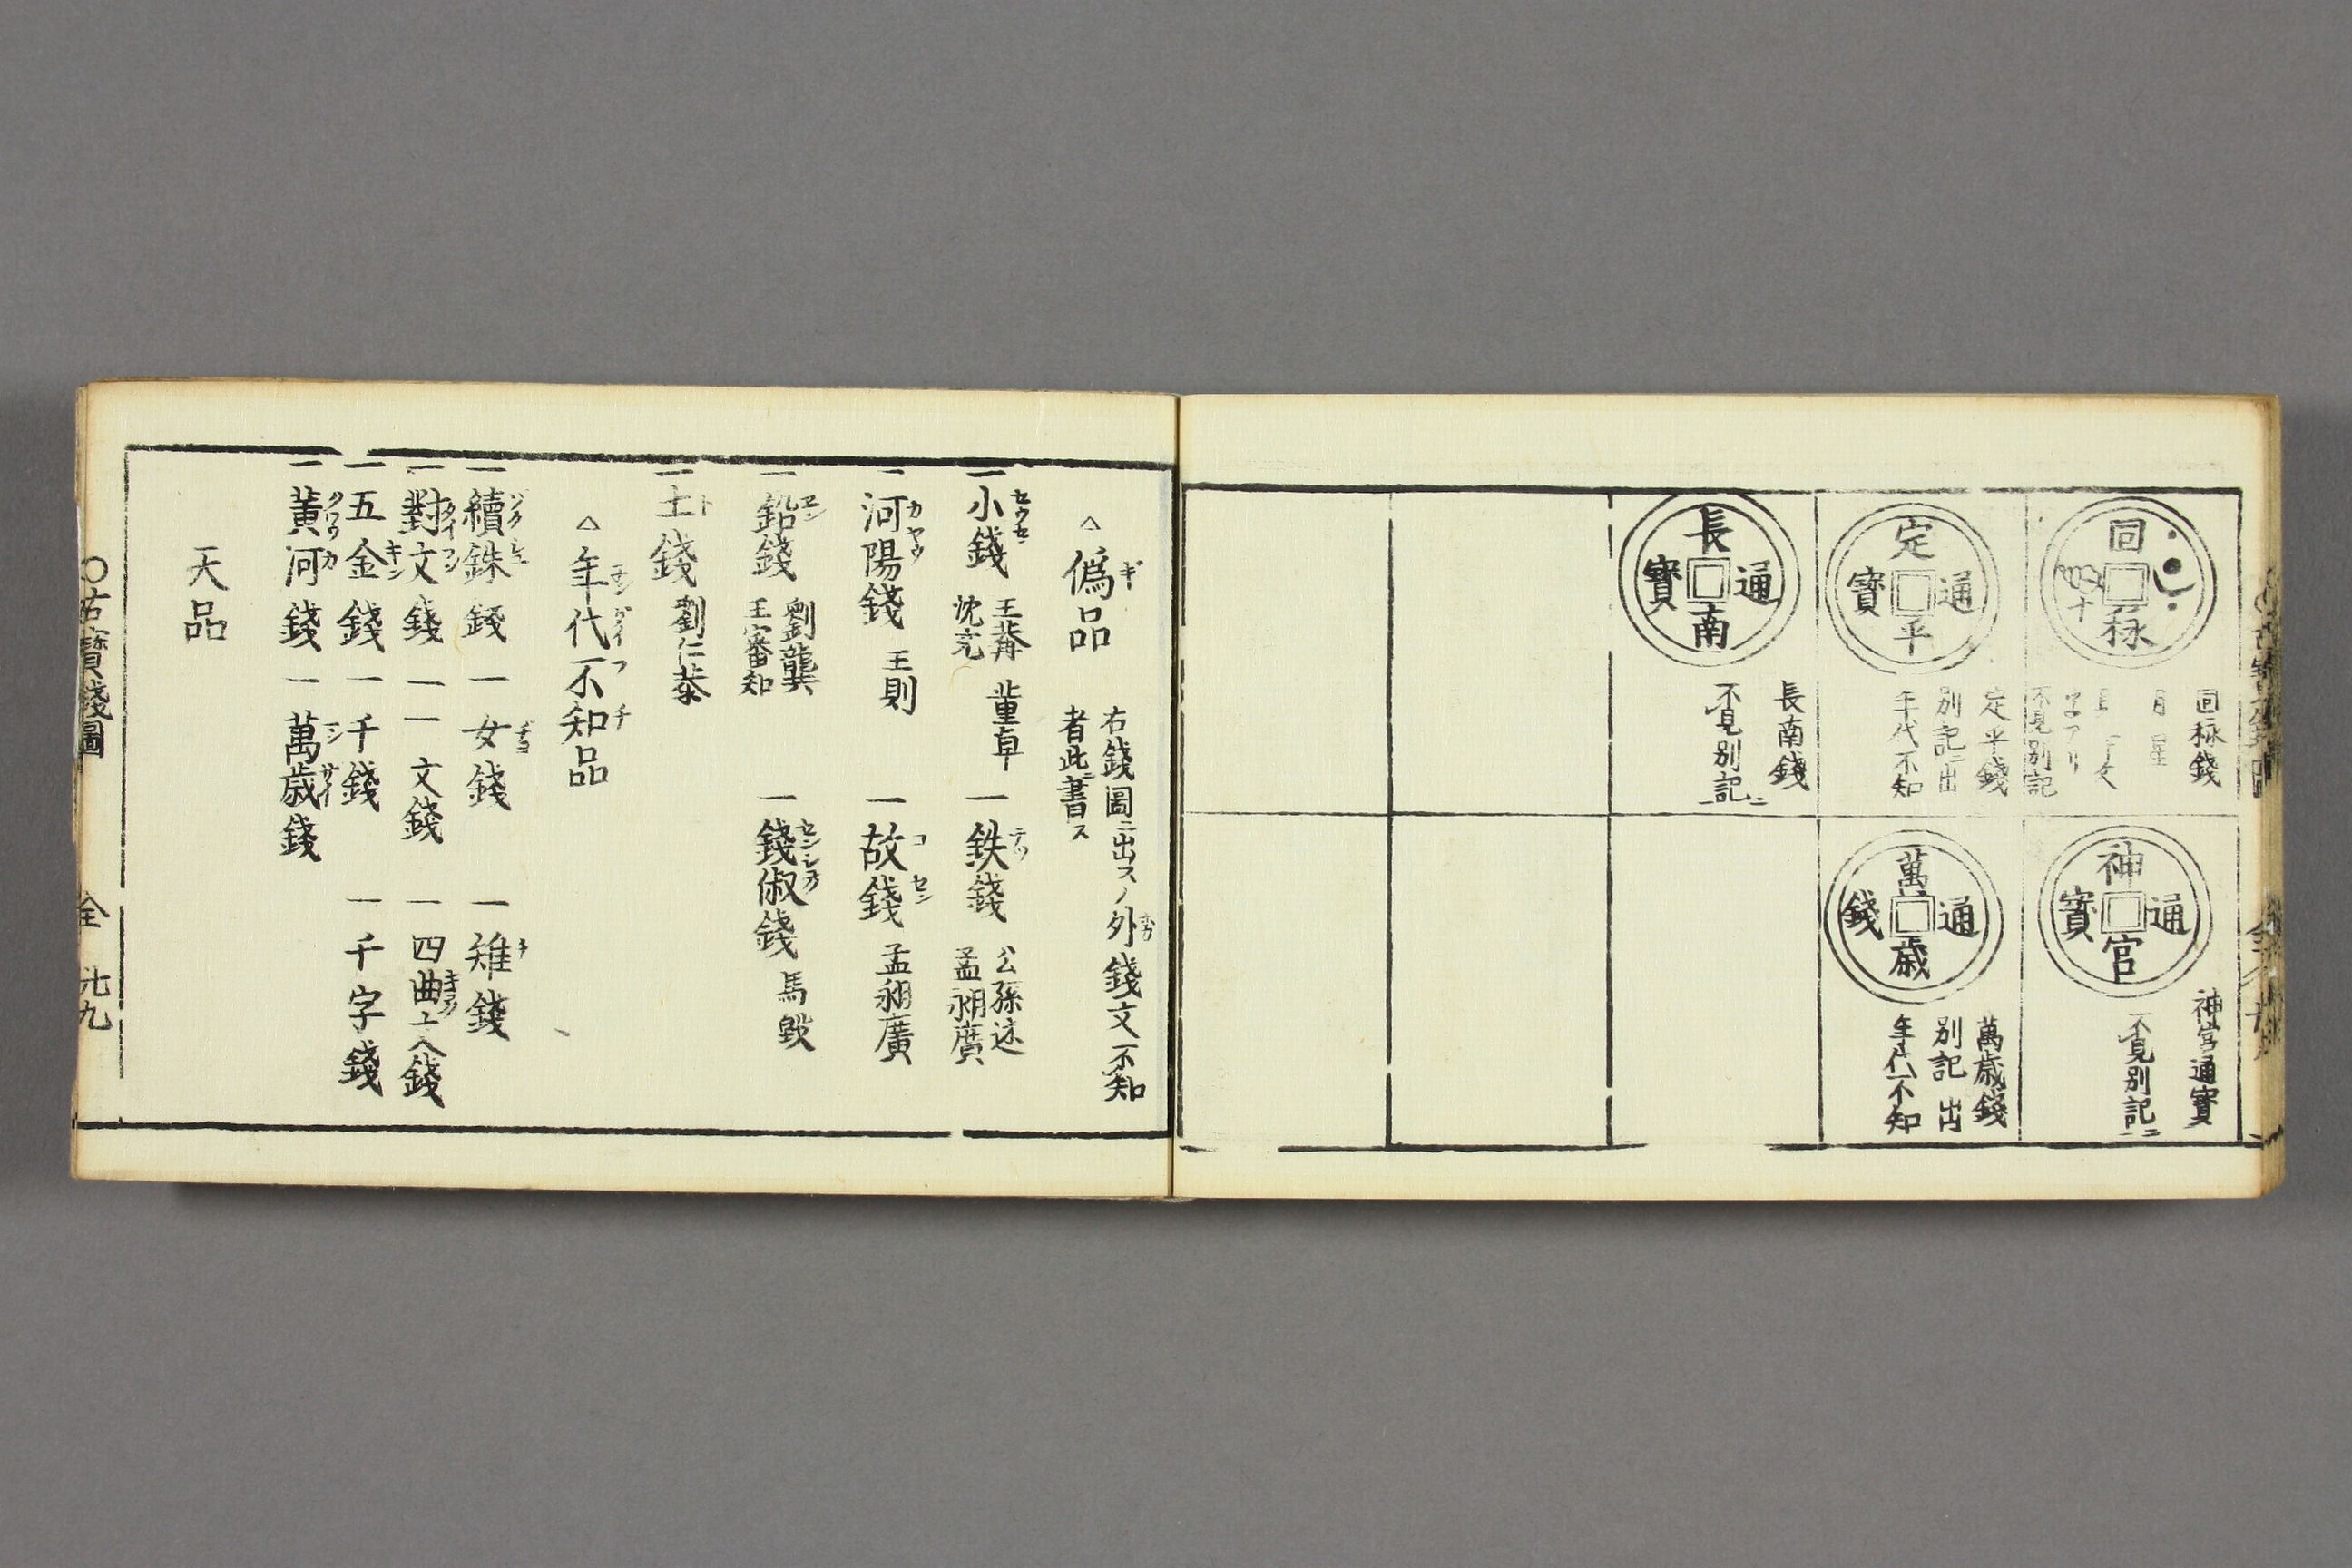 同
通
定
通
平
寶
長
通
南
寶
定平錢
別記ニ出
年代不知
不見別記
長南錢
不見別記ニ
神
通
宮
寶
萬
通
歳
錢
神宮通寶
不見別記ニ
萬歳錢
別記出
年代不知
△偽品
右錢圖ニ出スノ外錢文不知
者此ニ書ス
一小錢 王莽 董卓
沈充
一鉄錢 公孫述
孟昶廣
一河陽錢 王則
一故錢 孟昶廣
一鉛錢 劉龑
王審知
一錢俶錢 馬殷
一土錢 劉仁恭
△年代不知品
一續銖錢 一女錢 一雉錢
一對文錢 一一文錢 一四曲文錢
一五金錢 一千錢 一千字錢
一黄河錢 一萬歳錢
天品
○古寶錢圖 全 廿九